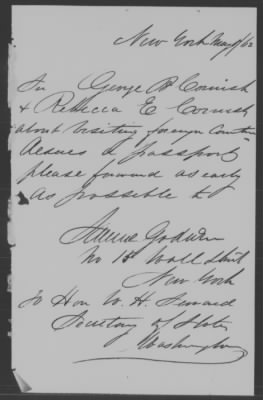 New York May 9/62
Sir George B Cornish
& Rebecca E Cornish
about visiting foreign Countries
desires a passport
please forward as early
as possible to
Godwin
No 18 Wall Street
New York
To Hon W. H. Seward
Secretary of State
Washington